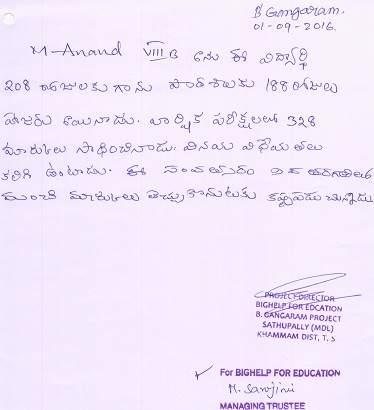 B Gangaram.
01-09-2016.
M-Anand VIII B అను ఈ విద్యార్థి
208 రోజులకు గాను పాఠశాలకు 188 రోజులు
హాజరు అయినాడు. వార్షిక పరీక్షలలో 328
మార్కులు సాధించినాడు. వినయ విధేయతలు
కలిగి ఉంటాడు. ఈ సంవత్సరం 9వ తరగతిలో
మంచి మార్కులు తెచ్చుకొనుటకు కష్టపడుచున్నాడు
PROJECT DIRECTOR
BIGHELP FOR EDCATION
B. GANGARAM PROJECT
SATHUPALLY (MDL)
KHAMMAM DIST, T. S
For BIGHELP FOR EDUCATION
M. Sarojini
MANAGING TRUSTEE